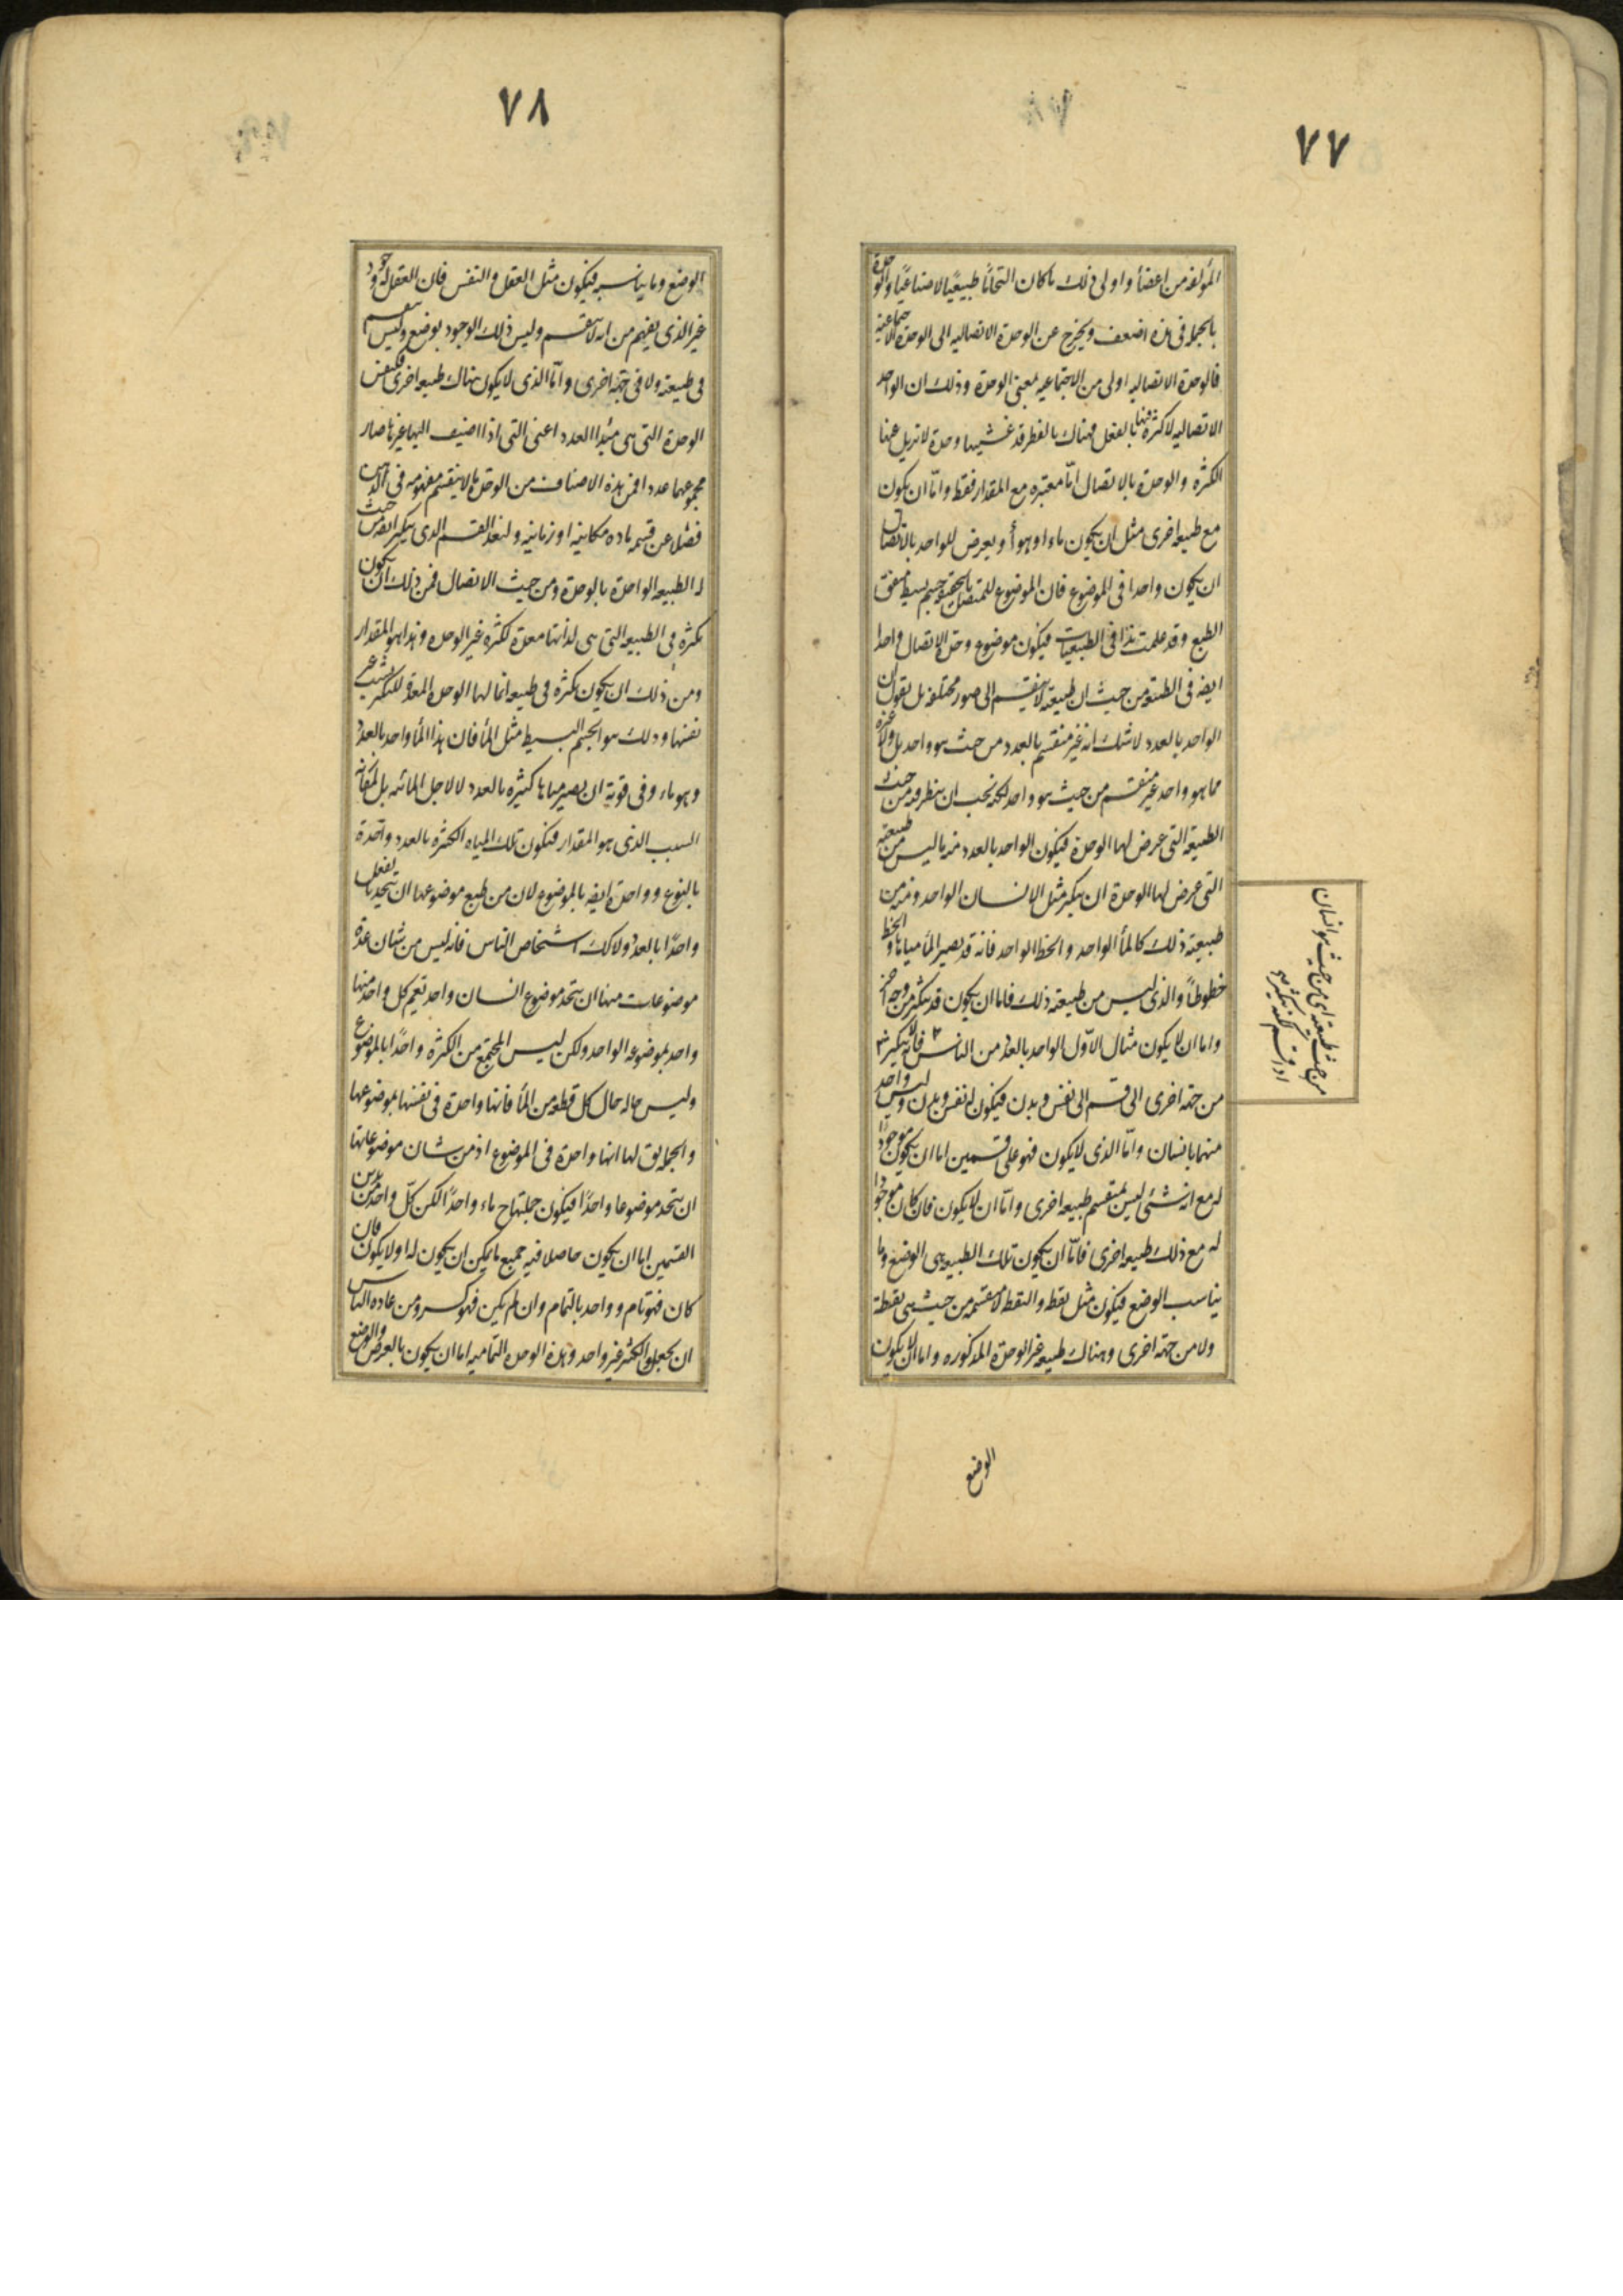 ٧٧
المؤلفه من اعضأ واولى ذلك ما كان التحامًا طبيعيًا لا صناعيًا والوحدة
بالجملة فى هذه اضعف ويخرج عن الوحدة الاتصاليه الى الوحدة الاجتماعية
فالوحدة الاتصاليه اولى من الاجتماعيه بمعنى الوحدة وذلك ان الواحد
الاتصاليه لا كثرة فيها بالفعل وهناك بالفعل قد غشيها وحدة لا تزيل عنها
الكثره والوحدة بالاتصال امّا معتبره مع المقدار فقط وامّا ان يكون
مع طبيعه اخرى مثل ان يكون ماء او هوأ ويعرض للواحد بالاتصال
ان يكون واحدا فى الموضوع فان الموضوع للمتصل بالحقيقة جسم بسيط متفق
الطبع وقد علمت هذا فى الطبيعيات فيكون موضوع وحدة الاتصال واحدا
ايضه فى الطبيعه من حيث ان طبيعته لا ينقسم الى صور مختلفه بل نقول ان
الواحد بالعدد لا شك انه غير منقسم بالعدد من حيث هو واحد بل ولا غيره
مما هو واحد غير منقسم من حيث هو واحد لكنه يجب ان ينظر فيه من حيث
الطبيعه التى عرض لها الوحدة فيكون الواحد بالعدد منه ما ليس من طبيعته
التى عرض لها الوحدة ان يتكثر مثل الانسان الواحد ومنه من
طبيعته ذلك كالمأ الواحد والخط الواحد فانه قد يصير المأ مياها والخط
خطوطاً والذى ليس من طبيعته ذلك فاما ان يكون قد يتكثر من وجه اخر
واما ان لا يكون مثال الاّول الواحد بالعدد من الناس فانه لا يتكثر
من جهه اخرى الى قسم الى نفس وبدن فيكون له نفس وبدن وليس واحد
منهما بانسان وامّا الذى لا يكون فهو على قسمين اما ان يكون موجودًا
له مع انه شئى ليس بمنقسم طبيعه اخرى وامّا ان لا يكون فان كان موجودا
له مع ذلك طبيعه اخرى فامّا ان يكون تلك الطبيعه هى الوضع وما
يناسب الوضع فيكون مثل نقطه والنقطه لا منقسمه من حيث هى نقطة
ولا من جهه اخرى وهناك طبيعه غير الوحدة المذكوره واما ان لا يكون
من حيث طبيعته اى من حيث هو انسان
اذا قسم لكنه يتكثر من
الوضع
٧٨
الوضع وما يناسبه فيكون مثل العقل والنفس فان العقل له وجود
غير الذى يفهم من انه لا ينقسم وليس ذلك الوجود بوضع وليس ينقسم
فى طبيعته ولا فى جهة اخرى وامّا الذى لا يكون هناك طبيعه اخرى فكنفس
الوحدة التى هى مبدا العدد اعنى التى اذا اضيف اليها غيرها صار
مجموعهما عددا فمن هذه الاصناف من الوحدة ما لا ينقسم مفهومه فى الذهن
فضلا عن قسمه ماده مكانيه او زمانيه ولنعد القسم الذى يتكثر ايضه من حيث
له الطبيعه الواحدة بالوحدة ومن حيث الاتصال فمن ذلك ان يكون
تكثره فى الطبيعه التى هى لذاتها معدة لكثرة غير الوحده وهذا هو المقدار
ومن ذلك ان يكون تكثره فى طبيعه انما لها الوحدة المعدة للتكثر بسبب غير
نفسها وذلك هو الجسم البسيط مثل المأ فان هذا المأ واحد بالعدد
وهو ماء وفى قوته ان يصير مياها كثيره بالعدد لا لاجل المائيه بل لمقارنة
السبب الذى هو المقدار فيكون تلك المياه الكثيره بالعدد واحدة
بالنوع وواحدة ايضه بالموضوع لان من طبع موضوعها ان يتحد بالفعل
واحدًا بالعدد ولا كك اشخاص الناس فانه ليس من شان عدة
موضوعات منها ان يتحد موضوع انسان واحد نعم كل واحد منها
واحد بموضوعه الواحد ولكن ليس المجتمع من الكثرة واحدًا بالموضوع
وليس حاله حال كل قطعه من المأ فانها واحدة فى نفسها بموضوعها
والجملة يق لها انها واحدة فى الموضوع اذ من شان موضوعاتها
ان يتحد موضوعا واحدًا فيكون جملتها ح ماء واحدًا لكن كلّ واحد من هذين
القسمين اما ان يكون حاصلا فيه جميع ما يمكن ان يكون له او لا يكون فان
كان فهو تام وواحد بالتمام وان لم يكن فهو كثير ومن عاده الناس
ان يجعلوا الكثير غير واحد وهذه الوحده التماميه اما ان يكون بالفرض والوضع